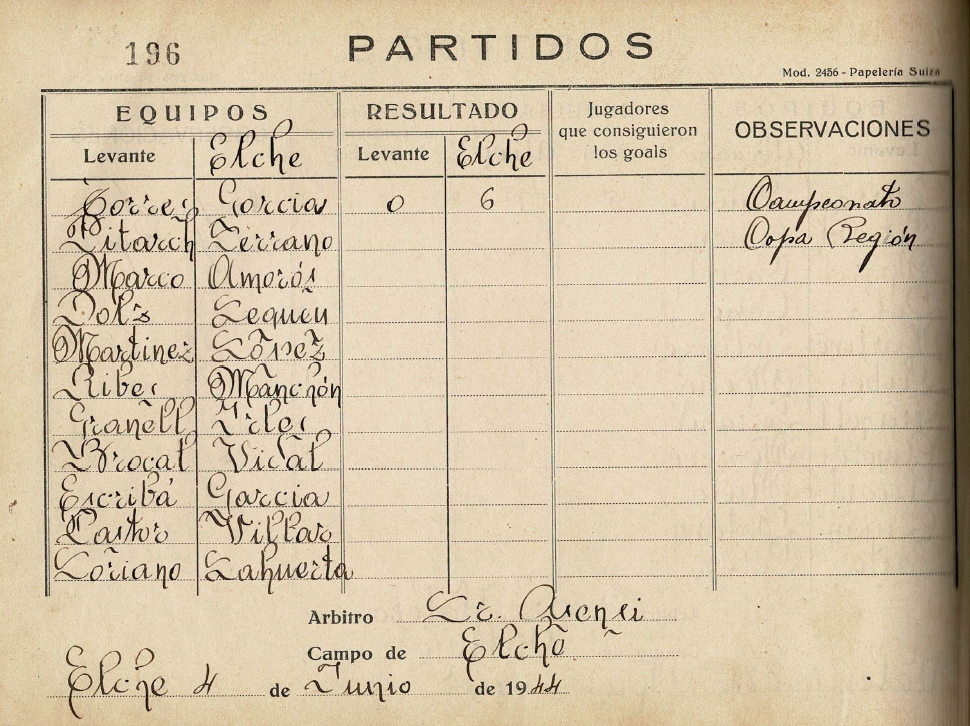 196 PARTIDOS
Mod. 2456 - Papelería Suiza
EQUIPOS RESULTADO Jugadores que consiguieron los goals OBSERVACIONES
Levante Elche Levante Elche
Torres Garcia 0 6 Campeonato
Litarch Serrano Copa Región
Marco Amorós
Dols
Martinez López
Riber Manchón
Granell Irles
Brocal Vidal
Escribá Garcia
Pastor Villar
Soriano Lahuerta
Arbitro Sr. Asensi
Campo de Elche
Elche 4 de Junio de 1944